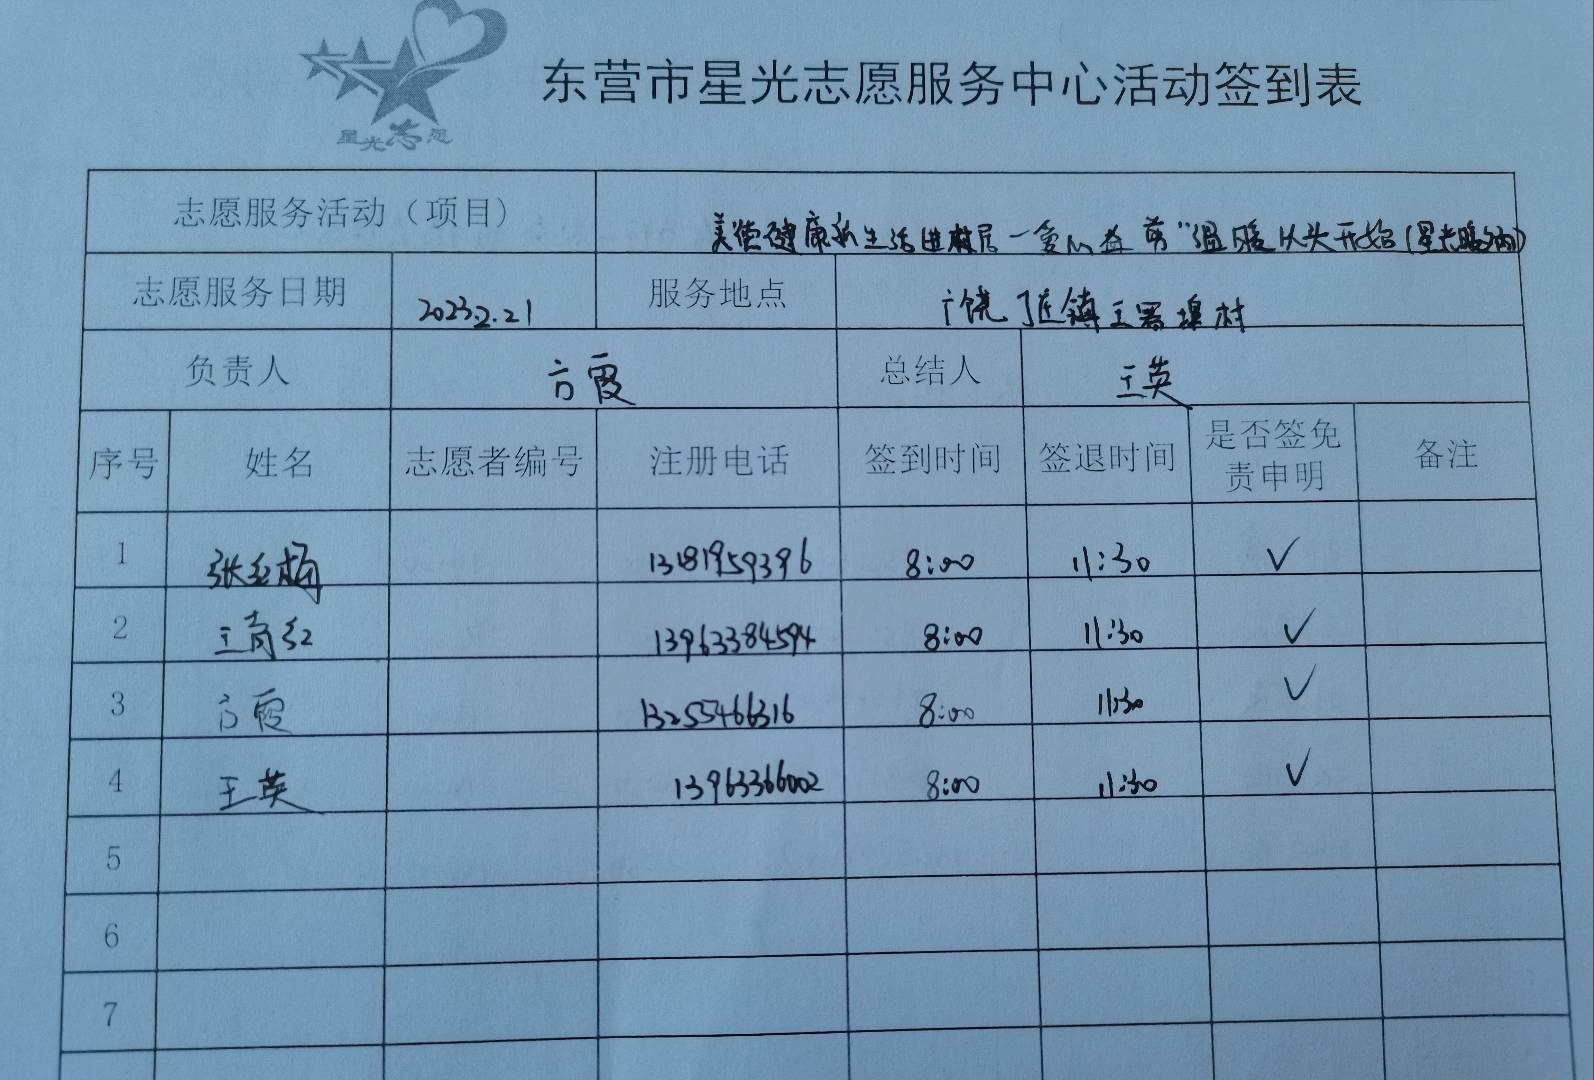 星光志愿
东营市星光志愿服务中心活动签到表
志愿服务活动（项目） 美德健康新生活进村居一爱心益剪“温暖从头开始(星光
志愿服务日期 2023.2.21 服务地点 广饶 镇王署埠村
负责人 方霞 总结人 王英
序号 姓名 志愿者编号 注册电话 签到时间 签退时间 是否签免责申明 备注
1 张 13181959396 8:00 11:30 ✓
2 王青红 13963384594 8:00 11:30 ✓
3 方霞 13255466316 8:00 11:30 ✓
4 王英 13963366002 8:00 11:30 ✓
5
6
7